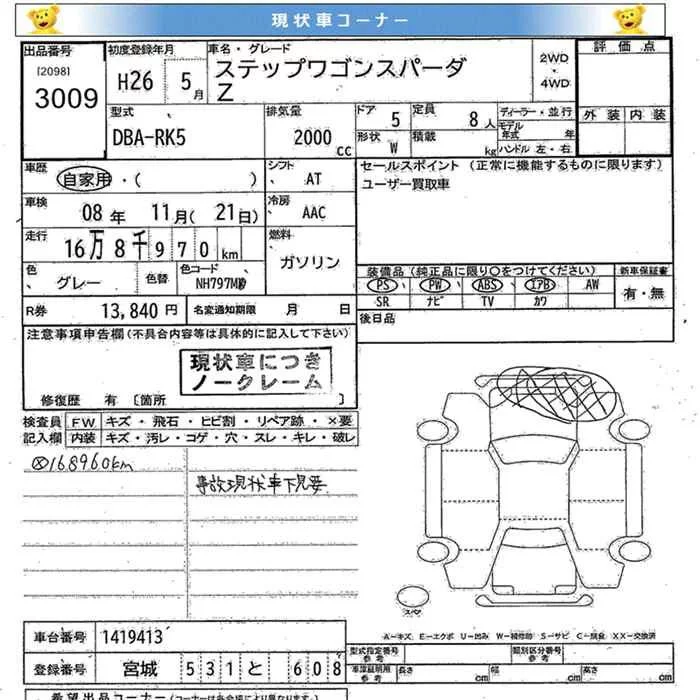 現状車コーナー
出品番号 初度登録年月 車名・グレード 2WD 評価点
[2098] H26 5月 ステップワゴンスパーダ ・
3009 Z 4WD
型式 排気量 ドア 定員 ディーラー・並行 外装 内装
DBA-RK5 2000 CC 5 8人 モデル年式 年
形状 W 積載 kg ハンドル 左・右
車歴 シフト セールスポイント (正常に機能するものに限ります)
自家用・( ) AT ユーザー買取車
車検 冷房
08年 11月( 21日) AAC
走行 燃料
16万8千970km ガソリン
色 色替 色コード 装備品(純正品に限り○をつけてください) 新車保証書
グレー PS PW ABS エアB AW 有・無
SR ナビ TV カワ
R券 13,840円 名変通知期限 月 日 後日品
注意事項申告欄(不具合内容等は具体的に記入して下さい)
現状車につき
ノークレーム
修復歴 有 〔箇所 〕
検査員 FW キズ・飛石・ヒビ割・リペア跡・×要
記入欄 内装 キズ・汚レ・コゲ・穴・スレ・キレ・破レ
168960km
事故現状車下見要
スペア
A－キズ E－エクボ U－凹み W－補修跡 S－サビ C－腐食 XX－交換済
車台番号 1419413 型式指定番号 参考 類別区分番号 参考
登録番号 宮城 531 と 608 車庫証明用 参考 長さ cm 幅 cm 高さ cm
希望出品コーナー